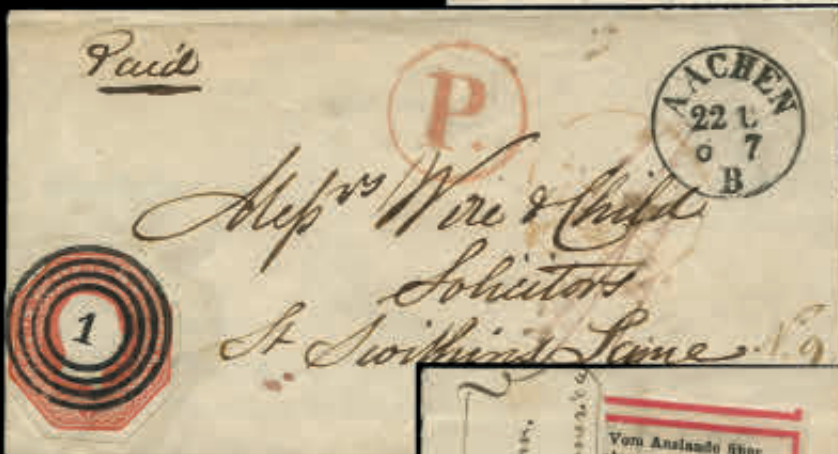 Paid
P.
AACHEN
22
7
B
Messrs Wire & Child
Solicitors
St Swithins Lane
1
Vom Auslande über